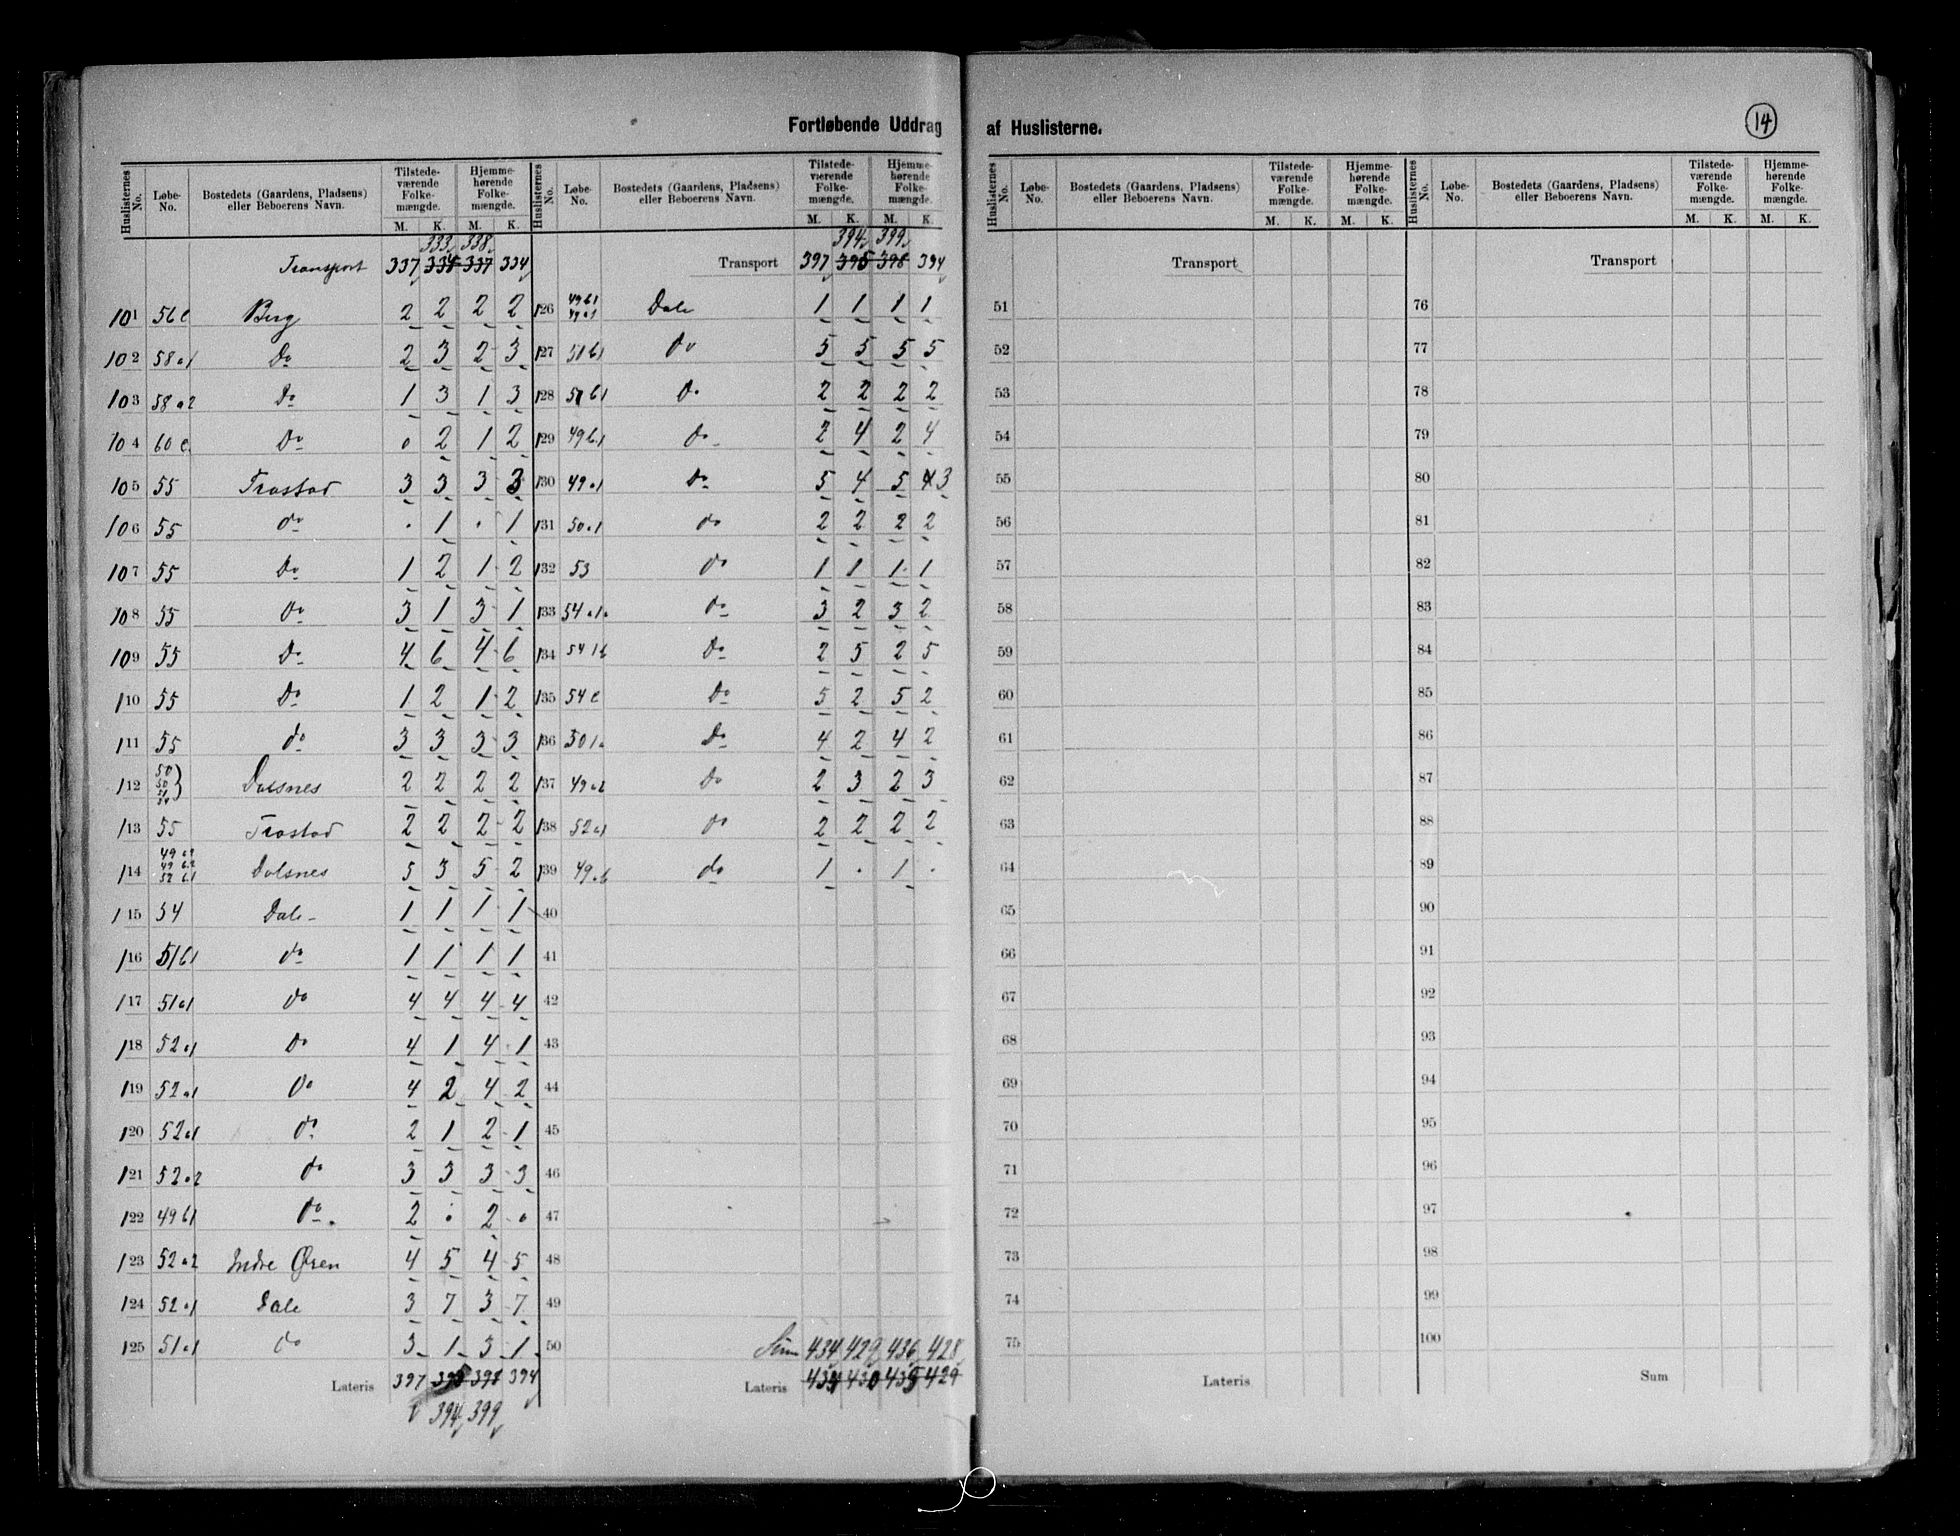 Fortløbende Uddrag af Huslisterne.
14
Huslisternes No. Løbe-No. Bostedets (Gaardens, Pladsens) eller Beboerens Navn. Tilstede-værende Folke-mængde. M. K. Hjemme-hørende Folke-mængde. M. K.
333 338
Transport 337 334 337 334
101 56c Berg 2 2 2 2
102 58a1 Do 2 3 2 3
103 58a2 Do 1 3 1 3
104 60c Do 0 2 1 2
105 55 Trostad 3 3 3 3
106 55 do . 1 . 1
107 55 Do 1 2 1 2
108 55 Do 3 1 3 1
109 55 Do 4 6 4 6
110 55 Do 1 2 1 2
111 55 do 3 3 3 3
112 50 50 51 54 } Dalsnes 2 2 2 2
113 55 Trostad 2 2 2 2
114 49 49 52 Dalsnes 5 3 5 2
115 54 Dale 1 1 1 1
116 51b1 do 1 1 1 1
117 51a1 do 4 4 4 4
118 52a1 Do 4 1 4 1
119 52a1 Do 4 2 4 2
120 52a1 do 2 1 2 1
121 52a2 do 3 3 3 3
122 49b1 Do 2 . 2 .
123 52a2 Indre Øren 4 5 4 5
124 52a1 Dale 3 7 3 7
125 51a1 do 3 1 3 1
Lateris 397 395 398 394
394 399
Huslisternes No. Løbe-No. Bostedets (Gaardens, Pladsens) eller Beboerens Navn. Tilstede-værende Folke-mængde. M. K. Hjemme-hørende Folke-mængde. M. K.
394 399
Transport 397 395 398 394
126 49b1 49a1 Dale 1 1 1 1
127 51b1 Do 5 5 5 5
128 51b1 Do 2 2 2 2
129 49b1 Do 2 4 2 4
130 49a1 Do 5 4 5 4 3
131 50a1 do 2 2 2 2
132 53 do 1 1 1 1
133 54a1 do 3 2 3 2
134 54 1b Do 2 5 2 5
135 54c Do 5 2 5 2
136 50 1a Do 4 2 4 2
137 49a2 Do 2 3 2 3
138 52a1 Do 2 2 2 2
139 49b do 1 . 1 .
40
41
42
43
44
45
46
47
48
49
50 Sum 434 429 436 428
Lateris 434 430 435 429
Huslisternes No. Løbe-No. Bostedets (Gaardens, Pladsens) eller Beboerens Navn. Tilstede-værende Folke-mængde. M. K. Hjemme-hørende Folke-mængde. M. K.
Transport
51
52
53
54
55
56
57
58
59
60
61
62
63
64
65
66
67
68
69
70
71
72
73
74
75
Lateris
Huslisternes No. Løbe-No. Bostedets (Gaardens, Pladsens) eller Beboerens Navn. Tilstede-værende Folke-mængde. M. K. Hjemme-hørende Folke-mængde. M. K.
Transport
76
77
78
79
80
81
82
83
84
85
86
87
88
89
90
91
92
93
94
95
96
97
98
99
100
Sum